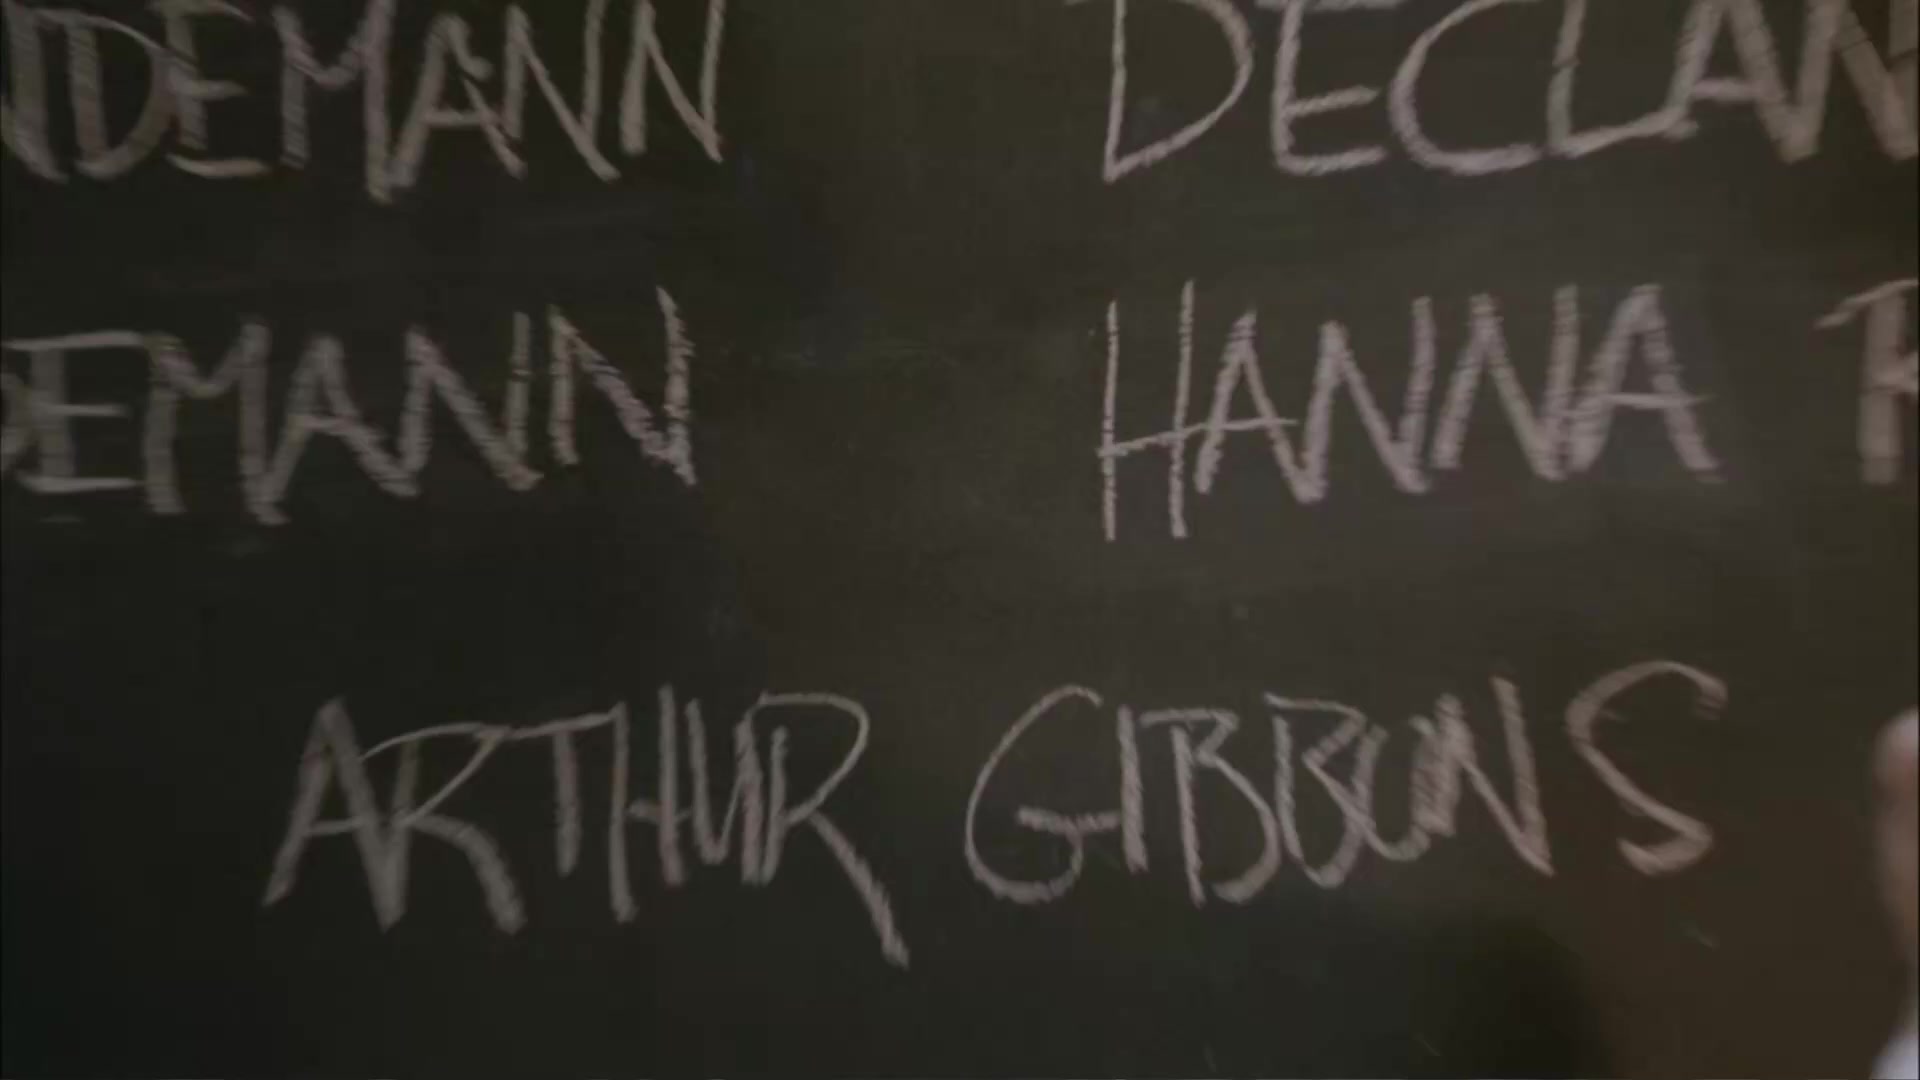 DEMANN DECLAN
EMANN HANNA
ARTHUR GIBBONS